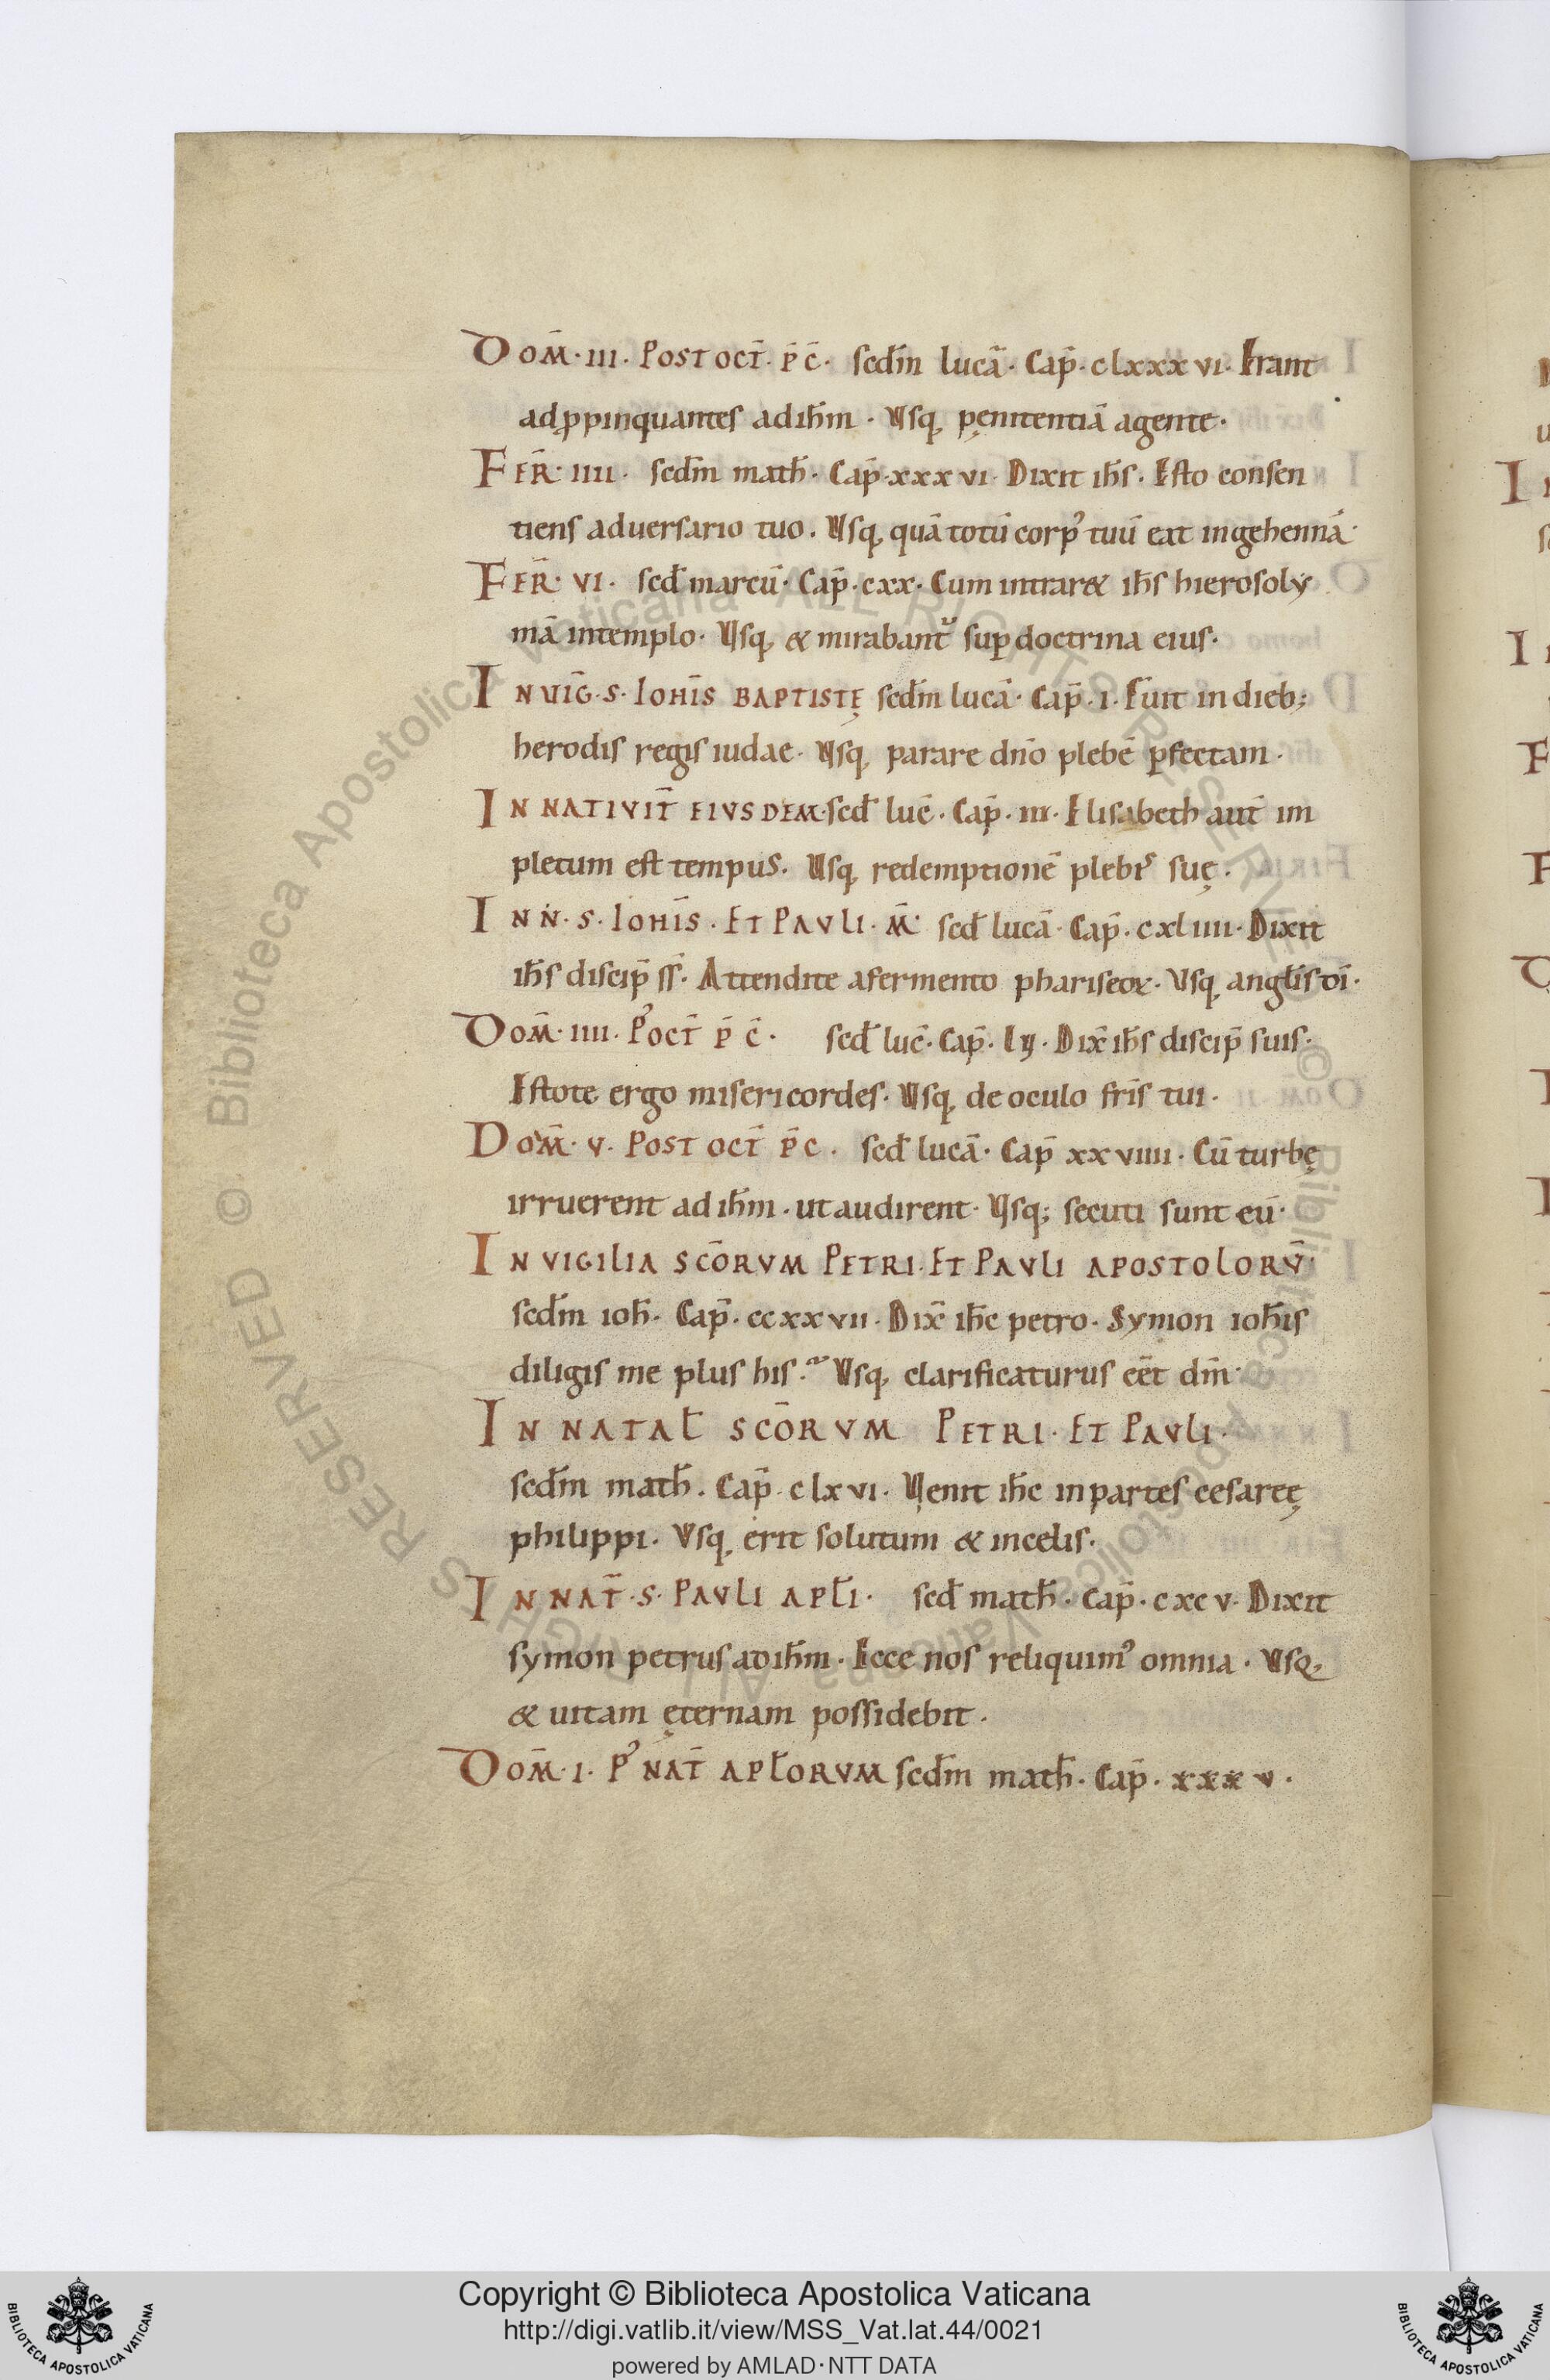 DOM̄·III· POST OCT̄· P̄ C̄· scd̄m lucā· Cap̄· clxxxvi· Erant
adꝓpinquantes ad ih̄m· Usq; pęnitentiā agente·
FER̄· IIII· scd̄m math̄· Cap̄·xxxvi· Dixit ih̄s· Esto consen
tiens adversario tuo. Usq; quā totū corpꝰ tuū eat in gehennā·
FER̄· VI· scd̄ marcū· Cap̄·cxx· Cum intrar& ih̄s hierosoly
mā in templo· Usq; & mirabant᷑ suꝑ doctrina eius·
IN VIḠ·S·IOHĪS BAPTISTĘ scd̄m lucā· Cap̄·i· Fuit in dieb;
herodis regis iudae· Usq; parare dn̄o plebē ꝑfectam·
IN NATIVIT̄ EIUSDEM·scd̄ luc̄· Cap̄·iii· Elisabeth aut̄ im
pletum est tempus. Usq; redemptionē plebis suę·
IN N̄·S·IOHĪS·ET PAVLI·M̄· scd̄ lucā· Cap̄·cxliiii· Dixit
ih̄s discip̄ ss̄· Attendite a fermento phariseoꝝ· Usq; angl̄is dī·
DOM̄·IIII· Pꝰ OCT̄ P̄ C̄· scd̄ luc̄· Cap̄· lv· Dix̄ ih̄s discip̄ suis·
Estote ergo misericordes· Usq; de oculo fr̄is tui·
DOM̄· V· POST OCT̄ P̄C· scd̄ lucā· Cap̄ xxviiii· Cū turbę
irruerent ad ih̄m· ut audirent· Usq; secuti sunt eū·
IN VIGILIA SCŌRVM PETRI·ET PAVLI APOSTOLORV̄·
scd̄m ioh̄· Cap̄·ccxxvii· Dix̄ ih̄c petro· Symon ioh̄is
diligis me plus his· Usq; clarificaturus eēt dm̄·
IN NATAL̄ SCŌRVM PETRI·ET PAVLI·
scd̄m math̄. Cap̄·clxvi· Uenit ih̄c in partes cesareę
philippi· Usq; erit solutum & in celis·
IN NAT̄·S·PAVLI APL̄I· scd̄ math̄· Cap̄·cxcv· Dixit
symon petrus ad ih̄m· Ecce nos reliquimꝰ omnia· Usq;
& uitam ęternam possidebit·
DOM̄·I· Pꝰ NAT̄ APL̄ORVM scd̄m math̄· Cap̄· xxxv·
Copyright © Biblioteca Apostolica Vaticana
http://digi.vatlib.it/view/MSS_Vat.lat.44/0021
powered by AMLAD·NTT DATA